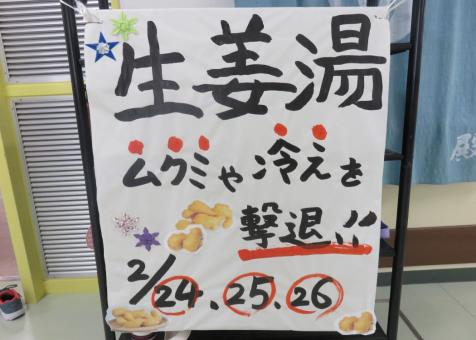 生姜湯
ムクミや冷えを
撃退!!
2/24.25.26